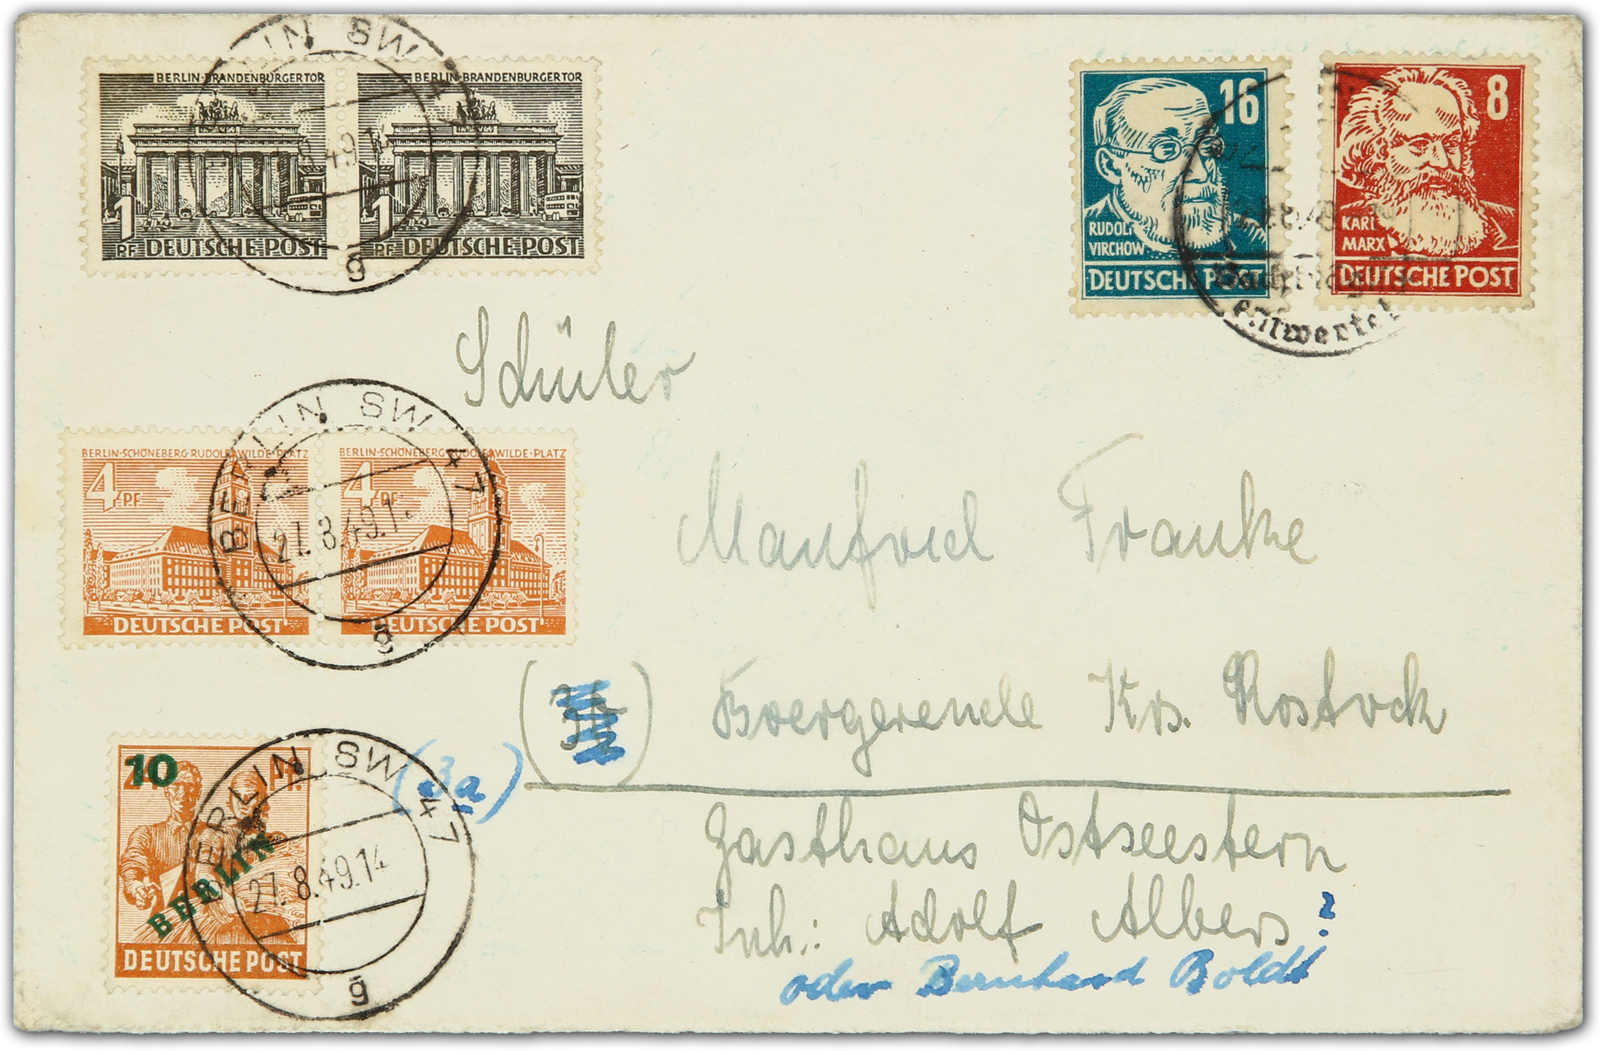 BERLIN-BRANDENBURGER TOR
1 PF DEUTSCHE POST
BERLIN-BRANDENBURGER TOR
1 PF DEUTSCHE POST
BERLIN SW 47
8.49.1
g
16
RUDOLF
VIRCHOW
DEUTSCHE POST
8
KARL
MARX
DEUTSCHE POST
entwertet
Schüler
BERLIN-SCHÖNEBERG·RUDOLF WILDE-PLATZ
4 PF
DEUTSCHE POST
BERLIN-SCHÖNEBERG·RUDOLF WILDE-PLATZ
4 PF
DEUTSCHE POST
BERLIN SW 47
27.8.49.1
g
Manfried Franke
(3a) Boergerende Krs. Rostock
10
BERLIN
DEUTSCHE POST
BERLIN SW 47
27.8.49.14
g
Gasthaus Ostseestern
Inh.: Adolf Albers?
oder Bernhard Boldt